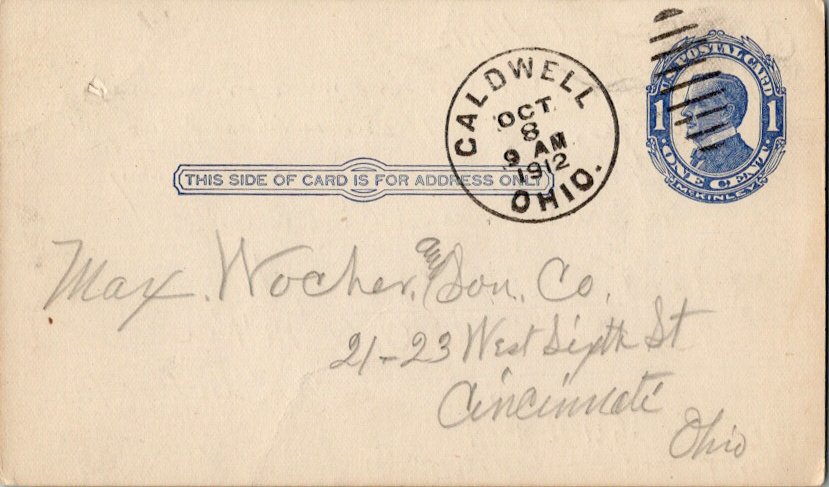 CALDWELL
OCT.
8
9 AM
1912
OHIO.
U.S. POSTAL CARD
1 1
ONE CENT
McKINLEY
THIS SIDE OF CARD IS FOR ADDRESS ONLY
Max. Wocher. and Son. Co.
21-23 West Sixth St
Cincinnati
Ohio